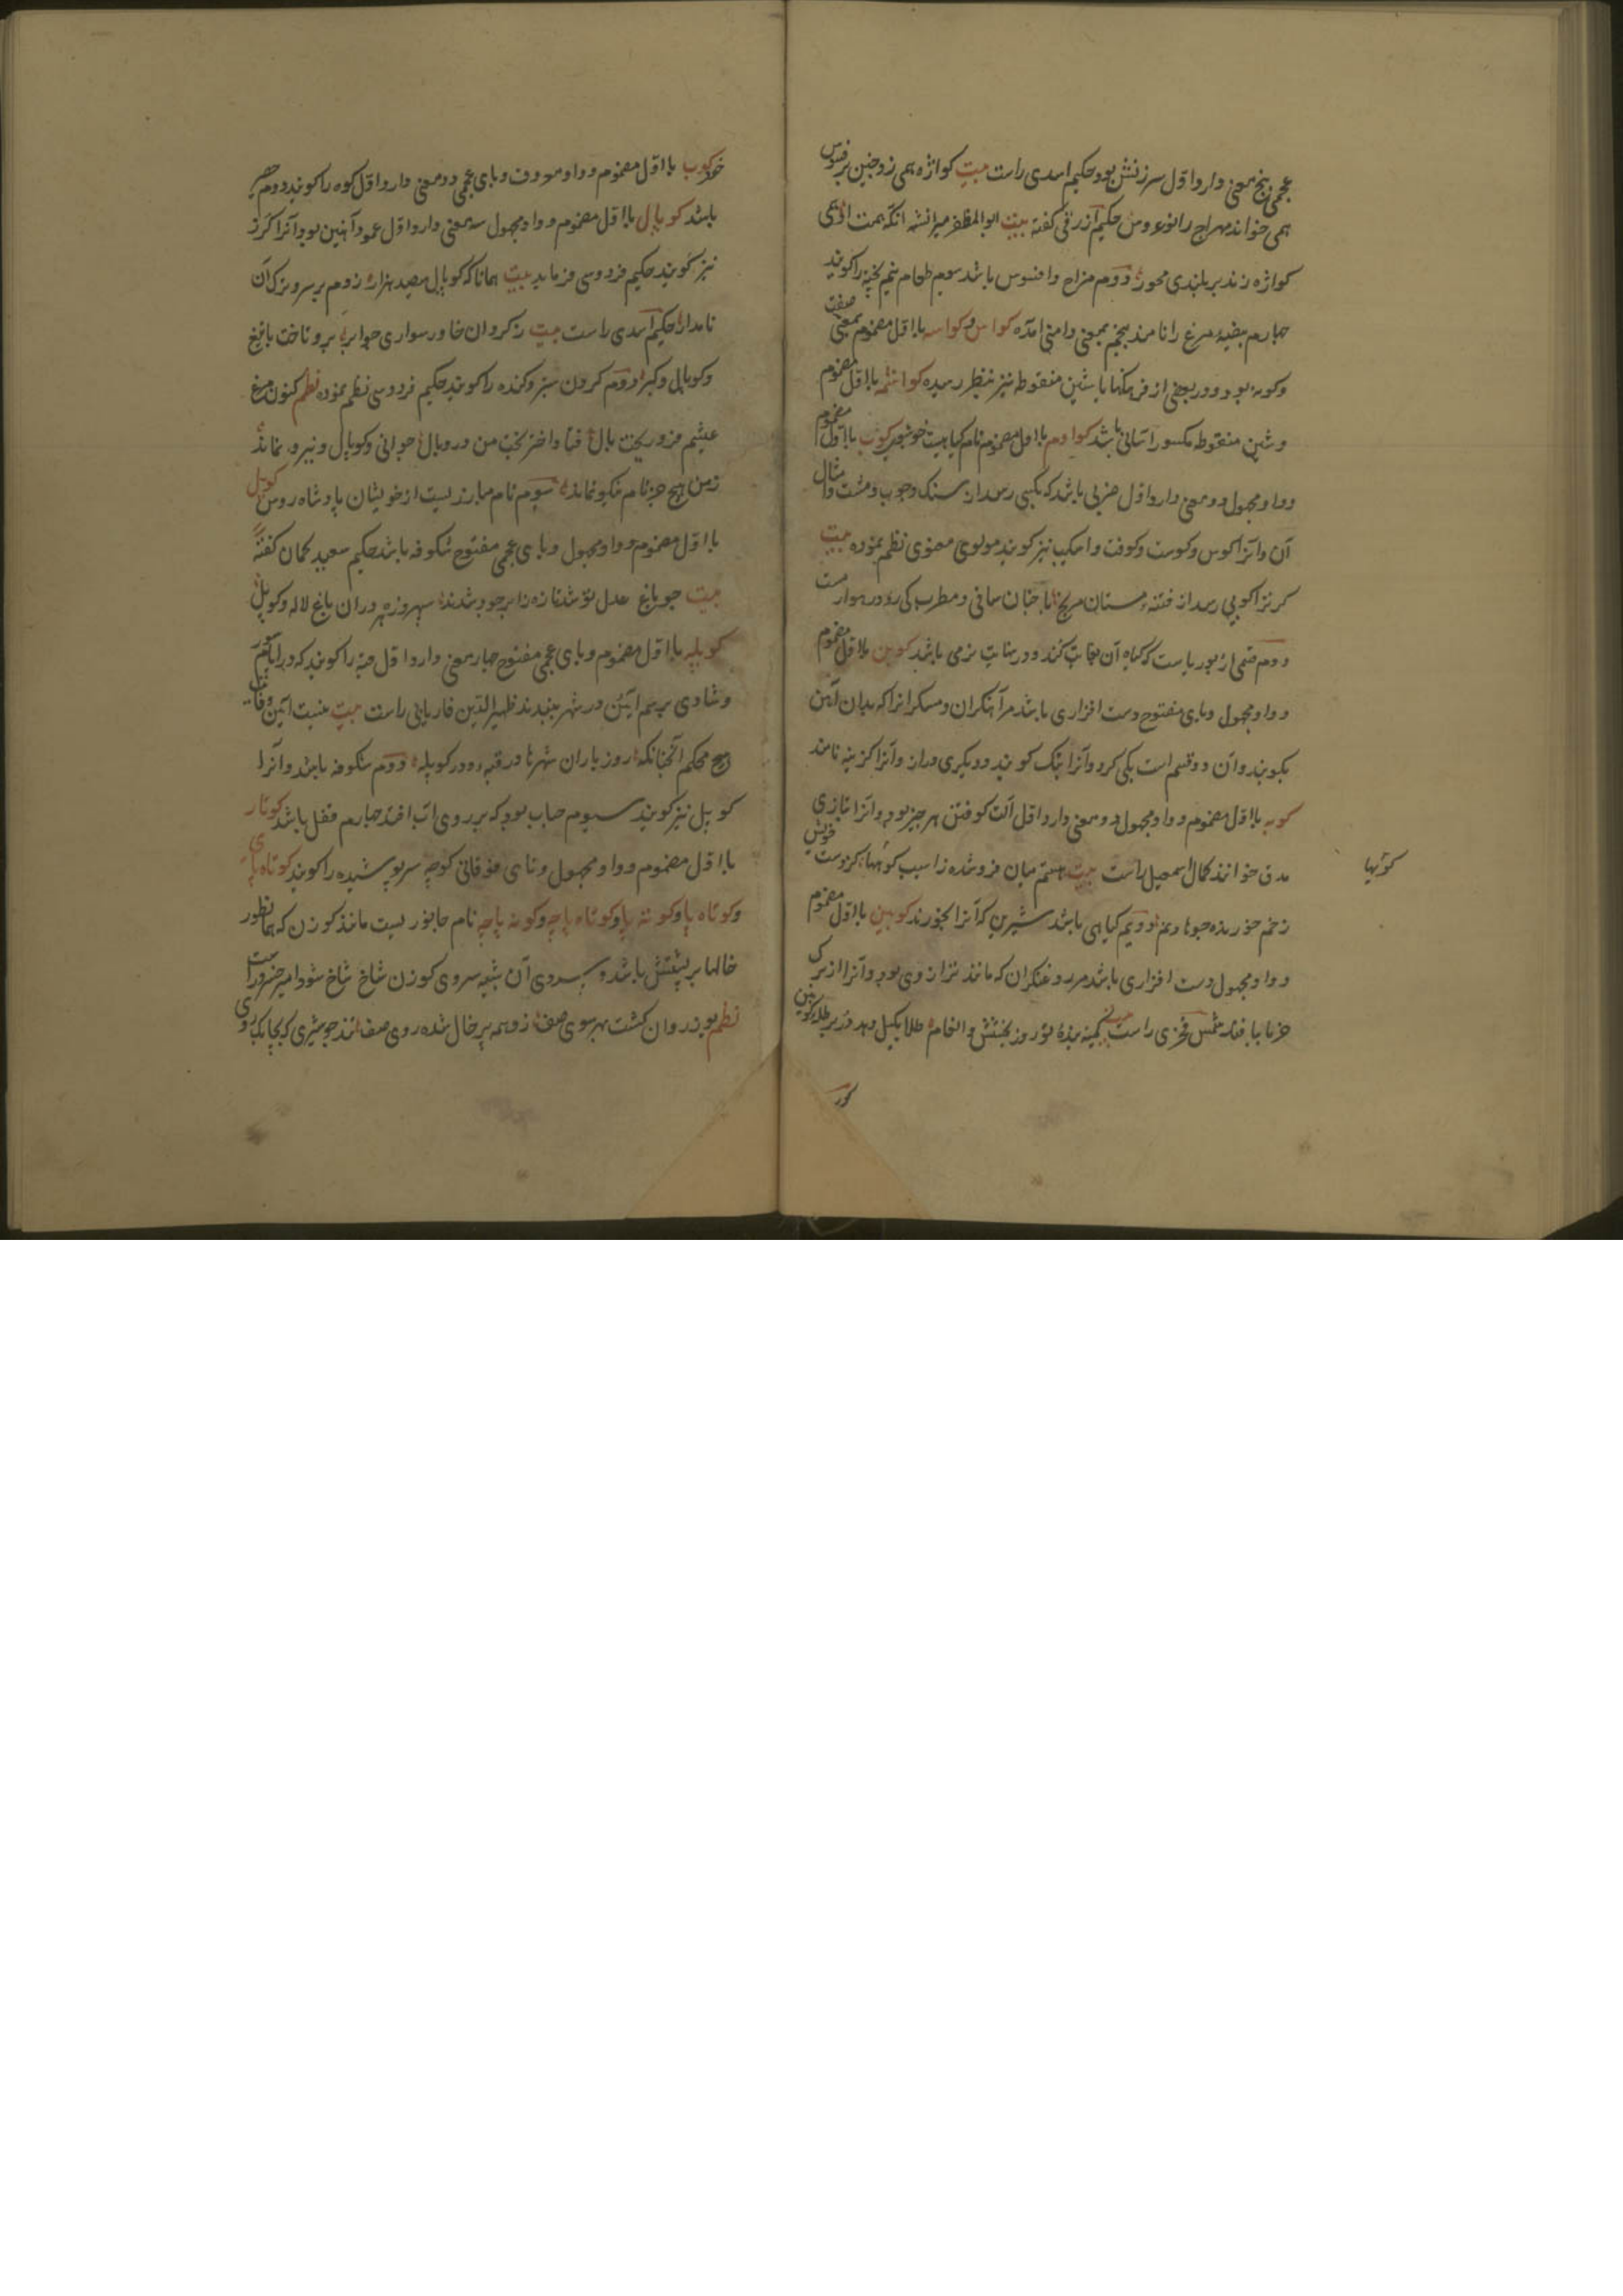 عجمی پنج معنی دارد اول سرزنش بود حکیم اسدی راست بیت کواژه همی زد چنین بر فسوس
همی خواند مهراج را نوعروس حکیم ازرقی گفته بیت ابوالمظفر میرانشه آنکه همت او
کواژه زند بر بلندی محور دوم مزاح و افسوس باشد سوم طعام نیم پخته را کویند
چهارم بیضه مرغ را نامند پنجم بمعنی دامنی آمده کواس و کواسه با اول مضموم بمعنی صفت
وکونه بود و در بعضی از فرهنکها با شین منقوطه نیز بنظر رسیده کواشمه با اول مضموم
و شین منقوطه مکسور آسانی باشد کوادم با اول مضموم نام کیاهیست خوشبوی کوب با اول مضموم
و واو مجهول دو معنی دارد اول ضربی باشد که بکسی رسد از سنک و چوب و مشت و امثال
آن و آنرا کوس و کوست و کوفت و آسیب نیز کویند مولوی معنوی نظم نموده بیت
کر ترا کوبی رسد از فتنه مستان مرنج با چنان ساقی و مطرب کی رود هموار مست
دوم قسمی از بوریاست که کیاه آن بغایت کنده و در نهایت نرمی باشد کوبن با اول مضموم
و واو مجهول و بای مفتوح دست افزاری باشد مر آهنکران و مسکرانرا که بدان آهن
بکوبند و آن دو قسم است یکی کرد و آنرا پتک کویند و دیکری دراز و آنرا کزینه نامند
کوبه با اول مضموم و واو مجهول دو معنی دارد اول آلت کوفتن هر چیز بود و آنرا بتازی
مدق خوانند کمال اسمعیل راست بیت هستم میان فروشده ز آسیب کوبها کز دست خویش
کوبها
زخم خورنده چو هاونم دویم کیاهی باشد شیرین که آنرا بخورند کوبین با اول مضموم
و واو مجهول دست افزاری باشد مر روغنکران که مانند ترازوی بود و آنرا از برک
خرما بافند شمس فخری راست بیت کمینه بنده نوروز بخشش و انعام طلا بکیل دهد
کور
خر کوب با اول مضموم و واو معروف و بای عجمی دو معنی دارد اول کوه را کویند دوم حصیر
باشد کوپال با اول مضموم و واو مجهول سه معنی دارد اول عمود آهنین بود و آنرا کرز
نیز کویند حکیم فردوسی فرماید بیت همانا که کوپال سیصد هزار زدم بر سر و ترک آن
نامدار حکیم اسدی راست بیت ز کردان خاور سواری چو ابر برو تاخت با تیغ
و کوپال و کبر دوم کردن ستبر و کنده را کویند حکیم فردوسی نظم نموده نظم کنون مرغ
عیشم فرو ریخت بال فتاد اختر بخت من در وبال جوانی و کوپال و نیرو نماند
ز من هیچ جز نام نیکو نماند سوم نام مبارزیست از خویشان پادشاه روس کوپل
با اول مضموم و واو مجهول و بای عجمی مفتوح شکوفه باشد حکیم سعید کفته
بیت چو باغ عدل تو شد تازه ز ابر جود شدند سپهر و زهره در آن باغ لاله و کوپل
کوپله با اول مضموم و بای عجمی مفتوح چهار معنی دارد اول قبه را کویند که در ایام سور
و شادی برسم آیین در شهر ببندند ظهیرالدین فاریابی راست بیت نیست آیین وفا
هیچ محکم آنچنانکه روز باران شهرها در قبه و در کوپله دوم شکوفه باشد و آنرا
کوپل نیز کویند سیوم حباب بود که بر روی آب افتد چهارم قفل باشد کوتار
با اول مضموم و واو مجهول و تای فوقانی کوچه سرپوشیده را کویند کوتاه پای
و کوتاه پا و کوته پا و کوتاه پاچه و کوته پاچه نام جانوریست مانند کوزن که همانطور
خالها بر پشتش باشد و سروی آن شبیه سروی کوزن شاخ شاخ شود امیر خسرو راست
نظم یوز روان کشت بهر سوی صف زو همه پر خال شده روی صف